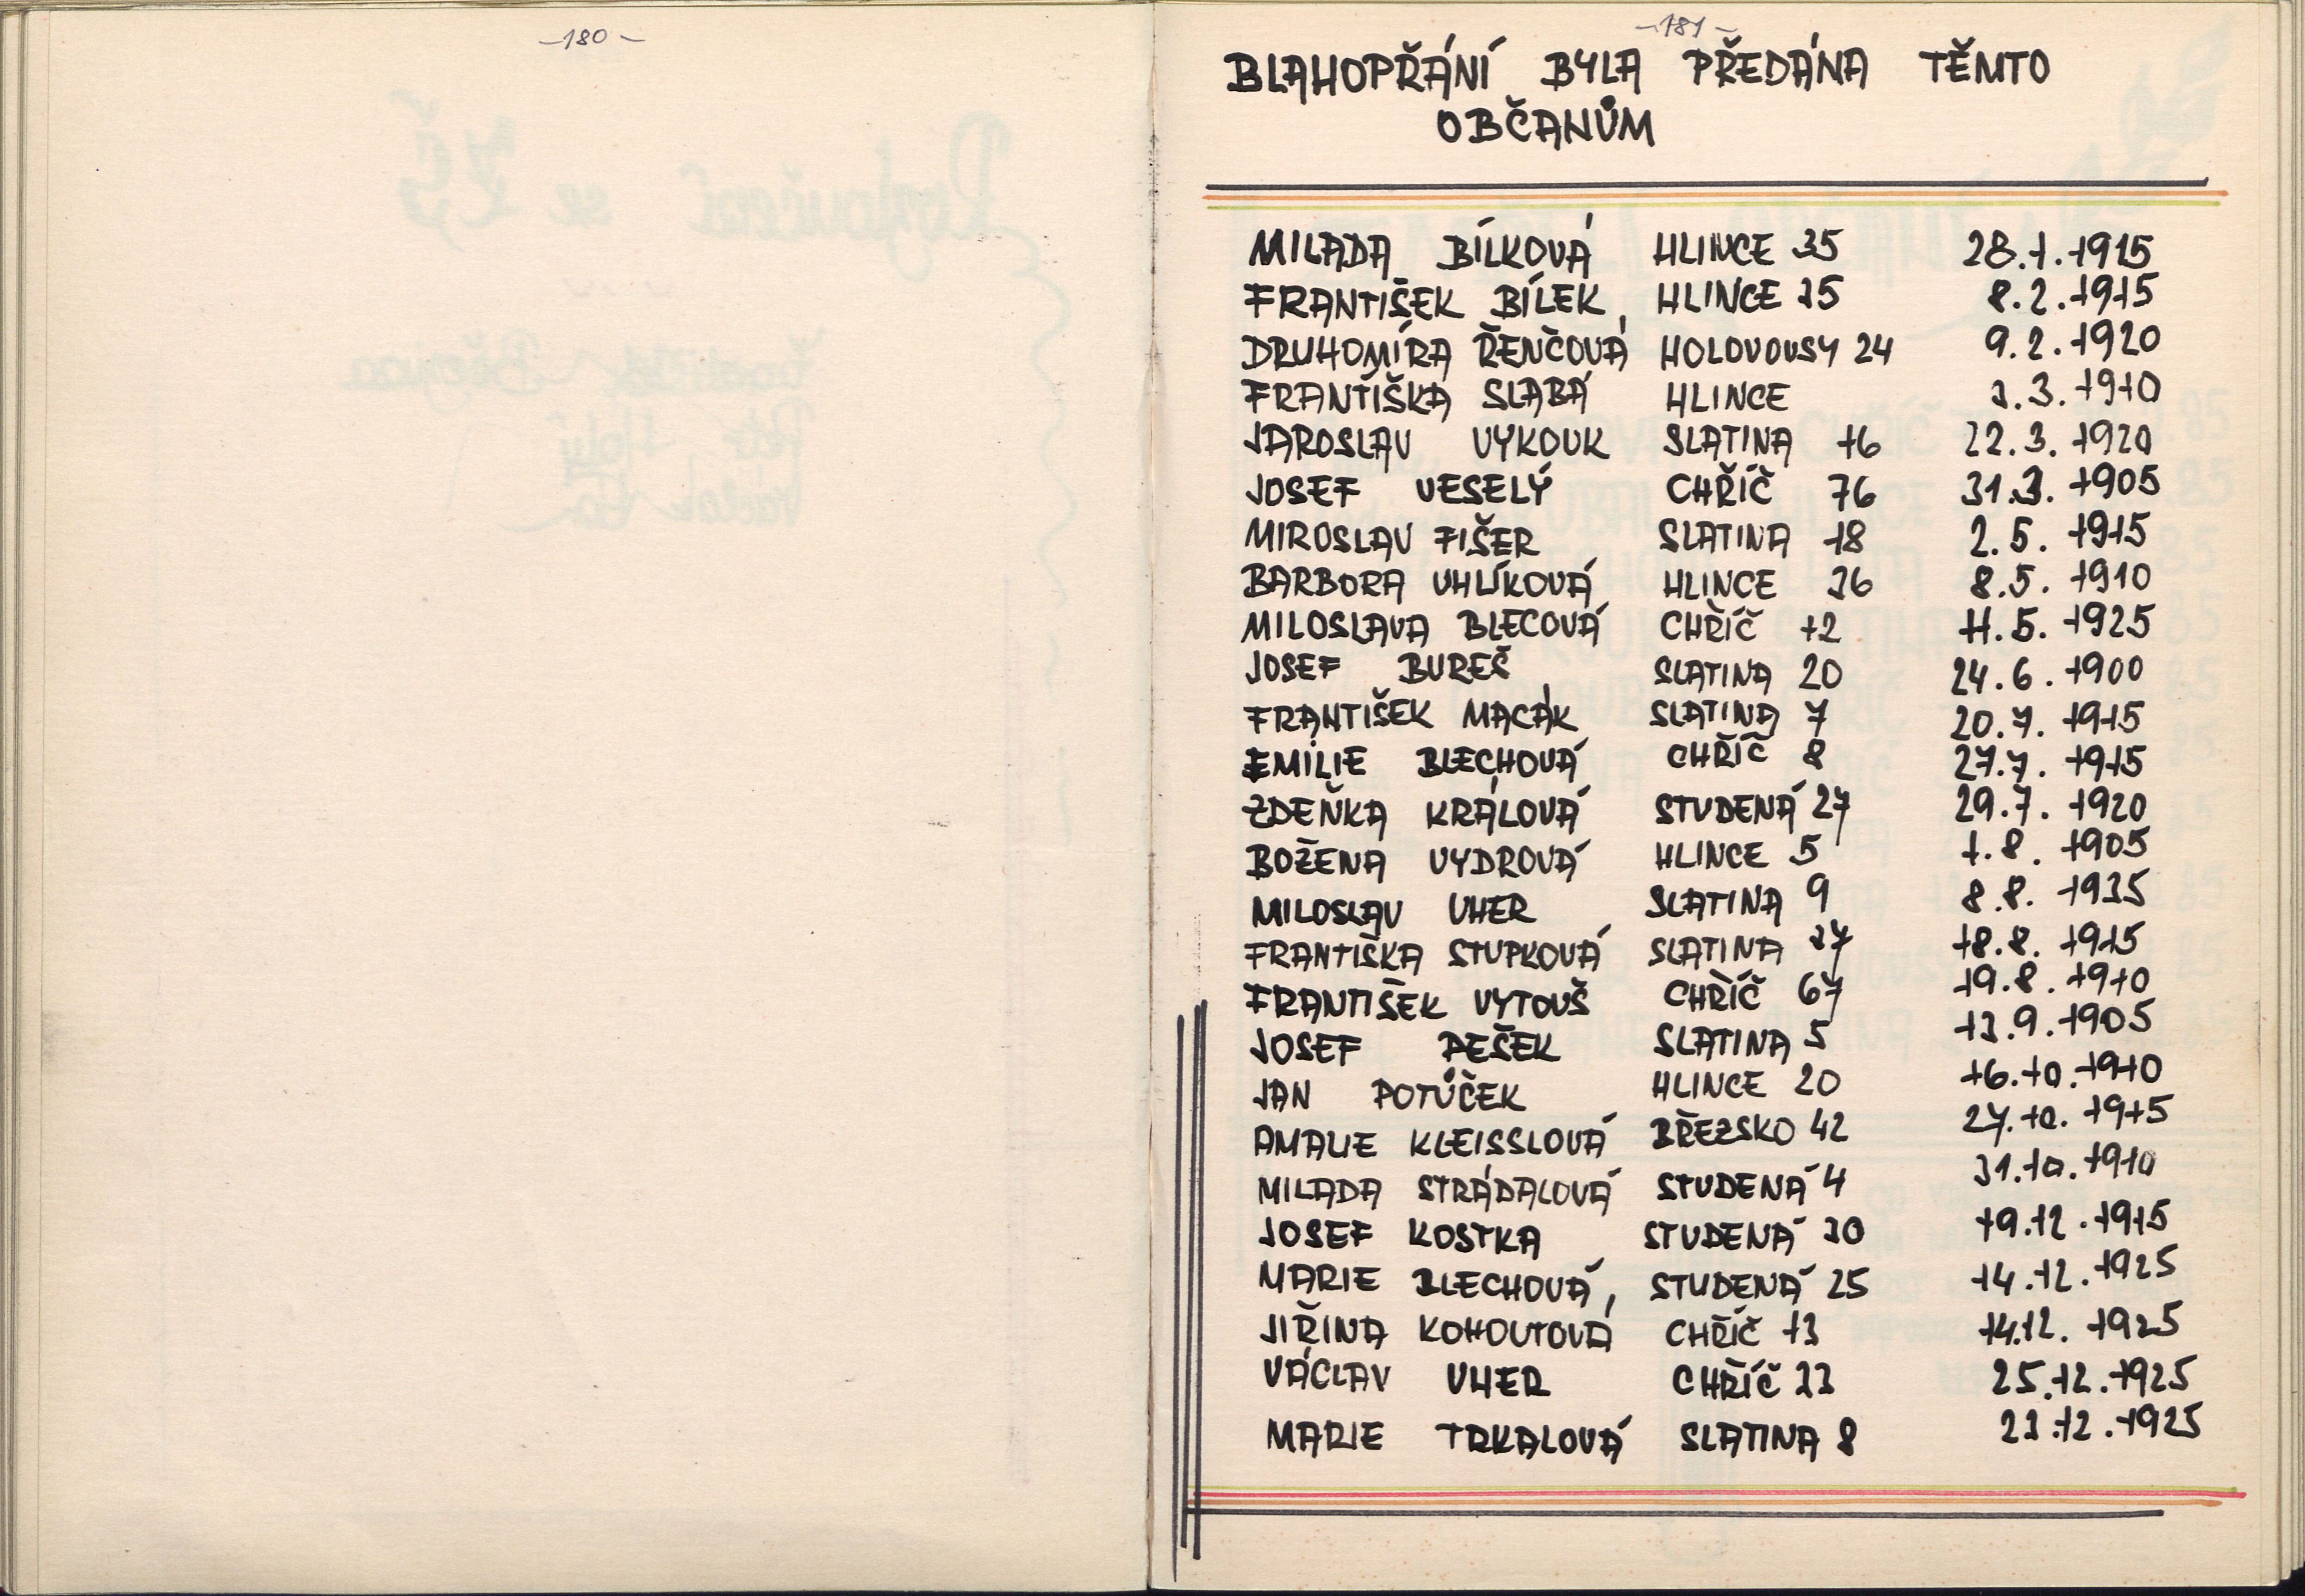 -180-
-181-
BLAHOPŘÁNÍ BYLA PŘEDÁNA TĚMTO
OBČANŮM
MILADA BÍLKOVÁ HLINCE 35 28.1.1915
FRANTIŠEK BÍLEK, HLINCE 35 8.2.1915
DRUHOMÍRA ŘENČOVÁ HOLOVOUSY 24 9.2.1920
FRANTIŠKA SLABÁ HLINCE 3.3.1910
JAROSLAV VYKOUK SLATINA 16 22.3.1920
JOSEF VESELÝ CHŘÍČ 76 31.3.1905
MIROSLAV FIŠER SLATINA 18 2.5.1915
BARBORA UHLÍKOVÁ HLINCE 36 8.5.1910
MILOSLAVA BLECOVÁ CHŘÍČ 12 11.5.1925
JOSEF BUREŠ SLATINA 20 24.6.1900
FRANTIŠEK MACÁK SLATINA 7 20.7.1915
EMILIE BLECHOVÁ CHŘÍČ 8 27.7.1915
ZDEŇKA KRÁLOVÁ STUDENÁ 27 29.7.1920
BOŽENA VYDROVÁ HLINCE 5 1.8.1905
MILOSLAV UHER SLATINA 9 8.8.1935
FRANTIŠKA STUPKOVÁ SLATINA 37 18.8.1915
FRANTIŠEK VYTOUŠ CHŘÍČ 67 19.8.1910
JOSEF PEŠEK SLATINA 5 13.9.1905
JAN POTŮČEK HLINCE 20 16.10.1910
AMALIE KLEISSLOVÁ BŘEZSKO 42 27.10.1915
MILADA STRÁDALOVÁ STUDENÁ 4 31.10.1910
JOSEF KOSTKA STUDENÁ 30 19.12.1915
MARIE BLECHOVÁ, STUDENÁ 25 14.12.1925
JIŘINA KOHOUTOVÁ CHŘÍČ 13 14.12.1925
VÁCLAV UHER CHŘÍČ 33 25.12.1925
MARIE TRKALOVÁ SLATINA 8 23.12.1925